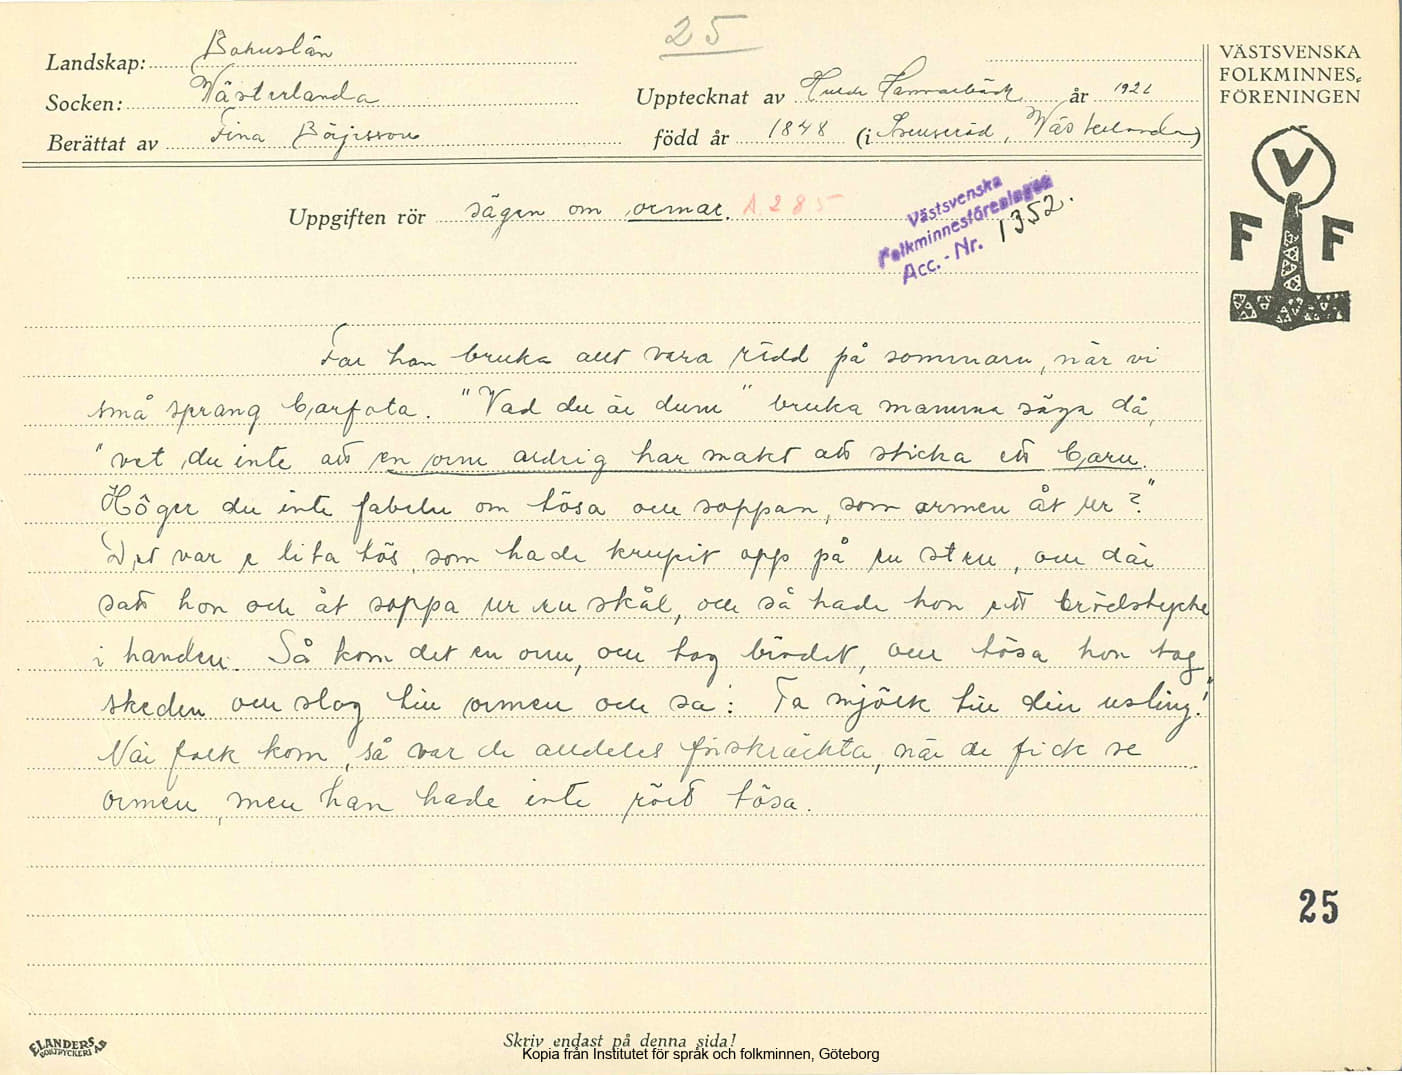 25
Landskap: Bohuslän
Socken: Västerlanda
Berättat av Fina Börjesson
Upptecknat av Hulda Hammarbäck år 1921
född år 1848 (i Svenseröd, Västerlanda)
VÄSTSVENSKA
FOLKMINNES-
FÖRENINGEN
V
F F
Uppgiften rör sägen om ormar. A. 285
Västsvenska
Folkminnesföreningen
Acc. - Nr. 1352.
Far han bruka allt vara rädd på sommarn, när vi
små sprang barfota. "Vad du är dum" bruka mamma säga då,
"vet du inte att en orm aldrig har makt att sticka ett barn.
Höger du inte fabeln om tösa och soppan, som ormen åt ur?"
Det var e lita tös, som hade krupit opp på en sten, och där
satt hon och åt soppa ur en skål, och så hade hon ett brödstycke
i handen. Så kom det en orm, och tog brödet, och tösa hon tog
skeden och slog till ormen och sa: Ta mjölk till din usling!"
När folk kom, så var de alldeles förskräckta, när de fick se
ormen, men han hade inte rört tösa.
25
ELANDERS
BOKTRYCKERI AB
Skriv endast på denna sida!
Kopia från Institutet för språk och folkminnen, Göteborg